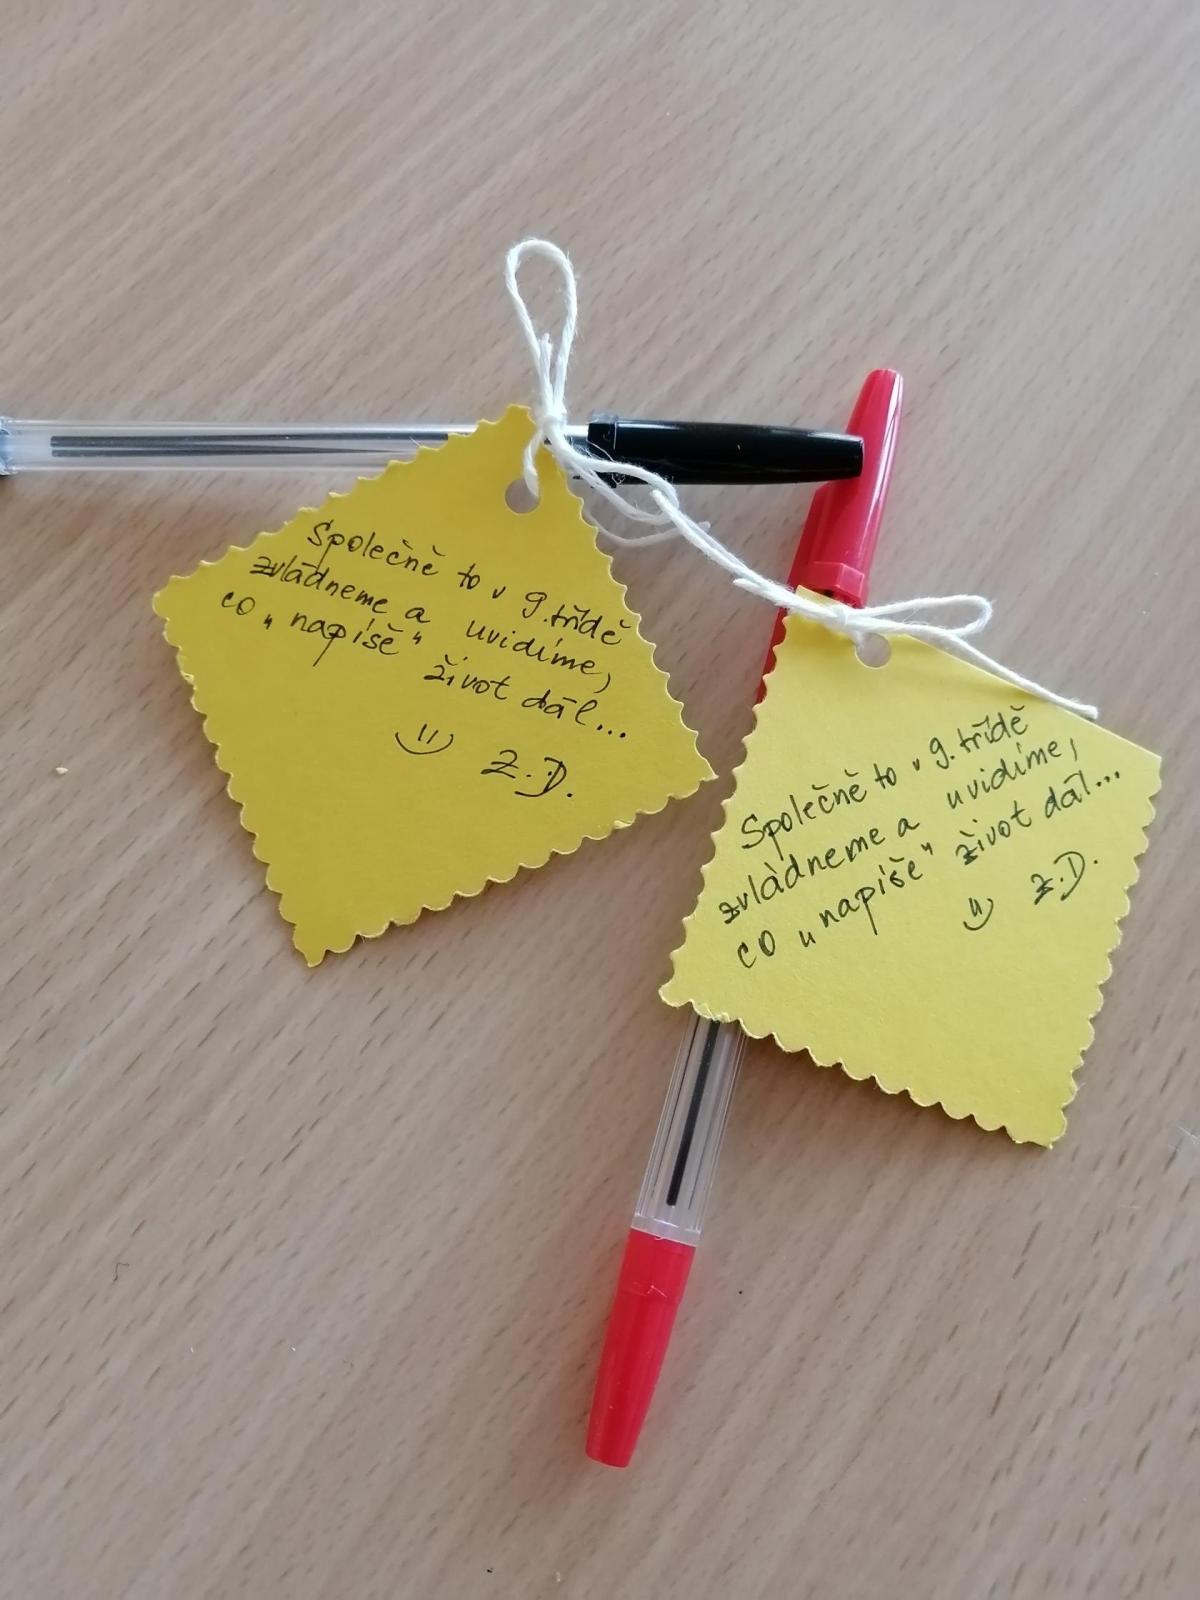 Společně to v 9. třídě
zvládneme a uvidíme,
co „napíše“
život dál...
Z.D.
Společně to v 9. třídě
zvládneme a uvidíme,
co „napíše“ život dál...
Z.D.